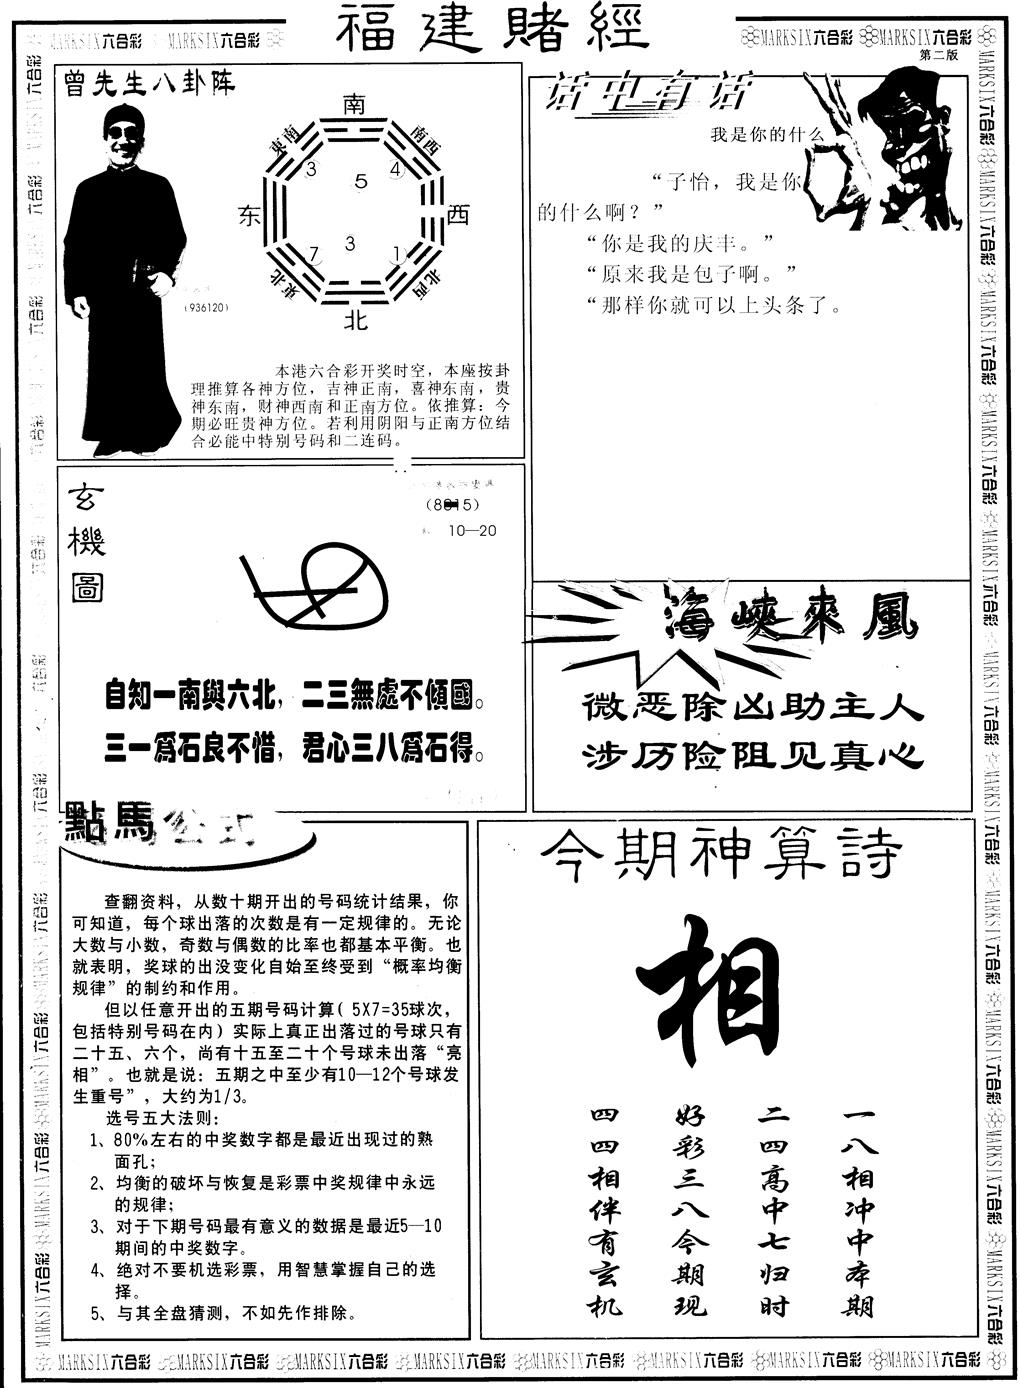 福建賭經
MARKSIX六合彩 MARKSIX六合彩
MARKSIX六合彩 MARKSIX六合彩
第二版
曾先生八卦阵
南
東南
南西
3
4
5
东
西
3
7
1
東北
北西
北
(936120)
本港六合彩开奖时空，本座按卦
理推算各神方位，吉神正南，喜神东南，贵
神东南，财神西南和正南方位。依推算：今
期必旺贵神方位。若利用阴阳与正南方位结
合必能中特别号码和二连码。
话中有话
我是你的什么
“子怡，我是你
的什么啊？”
“你是我的庆丰。”
“原来我是包子啊。”
“那样你就可以上头条了。
玄機圖
10—20
自知一南與六北，二三無處不傾國。
三一爲石良不惜，君心三八爲石得。
海峽來風
微恶除凶助主人
涉历险阻见真心
點馬公式
查翻资料，从数十期开出的号码统计结果，你
可知道，每个球出落的次数是有一定规律的。无论
大数与小数，奇数与偶数的比率也都基本平衡。也
就表明，奖球的出没变化自始至终受到“概率均衡
规律”的制约和作用。
但以任意开出的五期号码计算( 5X7=35球次，
包括特别号码在内）实际上真正出落过的号球只有
二十五、六个，尚有十五至二十个号球未出落“亮
相”。也就是说：五期之中至少有10—12个号球发
生重号”，大约为1/3。
选号五大法则：
1、80%左右的中奖数字都是最近出现过的熟
面孔；
2、均衡的破坏与恢复是彩票中奖规律中永远
的规律；
3、对于下期号码最有意义的数据是最近5—10
期间的中奖数字。
4、绝对不要机选彩票，用智慧掌握自己的选
择。
5、与其全盘猜测，不如先作排除。
今期神算詩
相
一八相冲中本期
二四高中七归时
好彩三八今期现
四四相伴有玄机
MARKSIX六合彩 MARKSIX六合彩 MARKSIX六合彩 MARKSIX六合彩 MARKSIX六合彩 MARKSIX六合彩 MARKSIX六合彩 MARKSIX六合彩